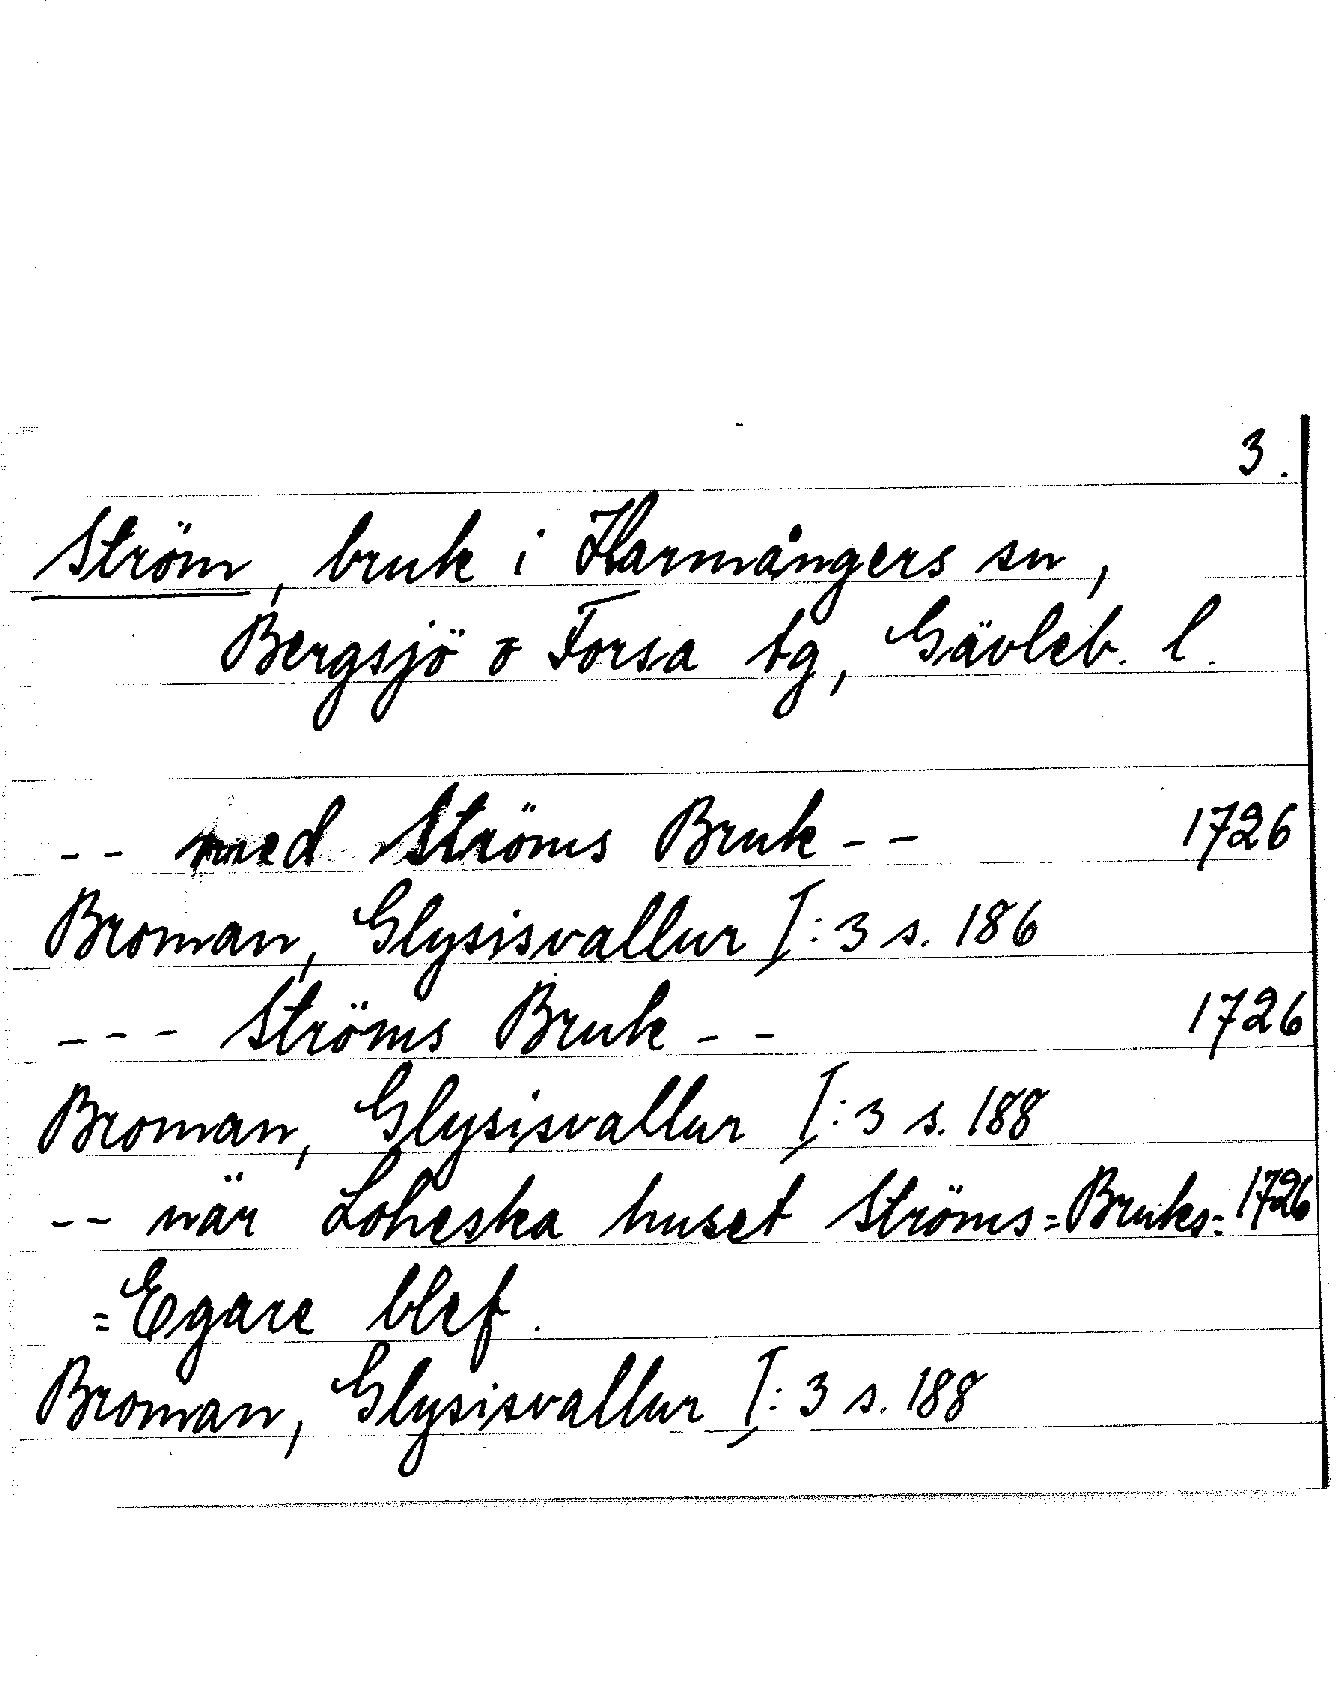 3.
Ström, bruk i Harmångers sn,
Bergsjö o Forsa tg, Gävleb. l.
-- med Ströms Bruk -- 1726
Broman, Glysisvallur I:3 s. 186
--- Ströms Bruk -- 1726
Broman, Glysisvallur I:3 s. 188
-- när Loheska huset Ströms=Bruks= 1726
=Egare blef.
Broman, Glysisvallur I:3 s. 188